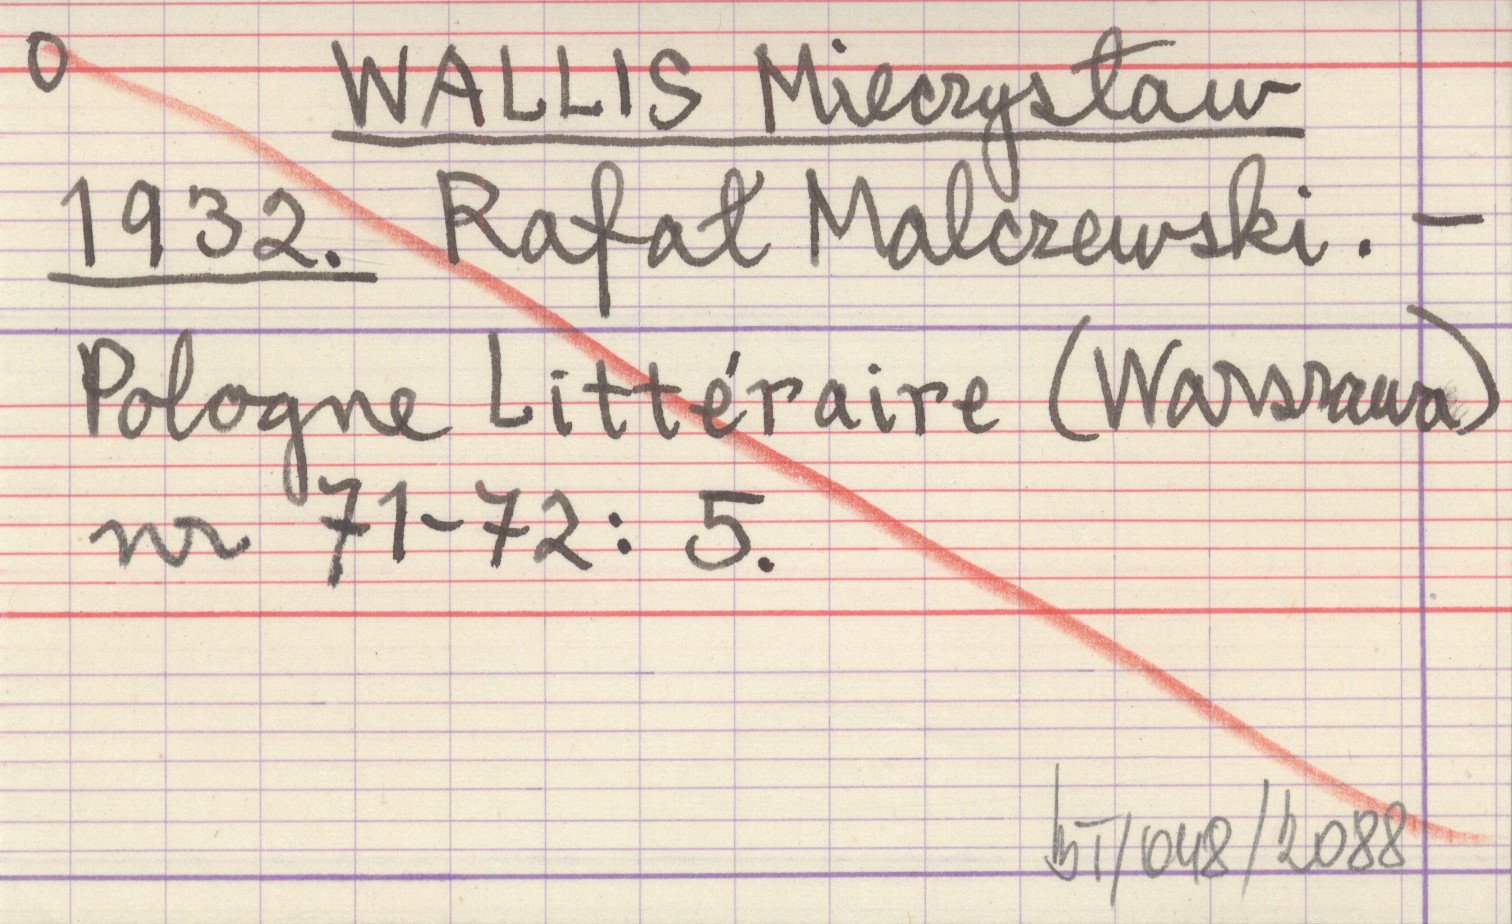 O WALLIS Mieczysław
1932. Rafał Malczewski. —
Pologne Littéraire (Warszawa)
nr 71-72: 5.
bT/048/2088